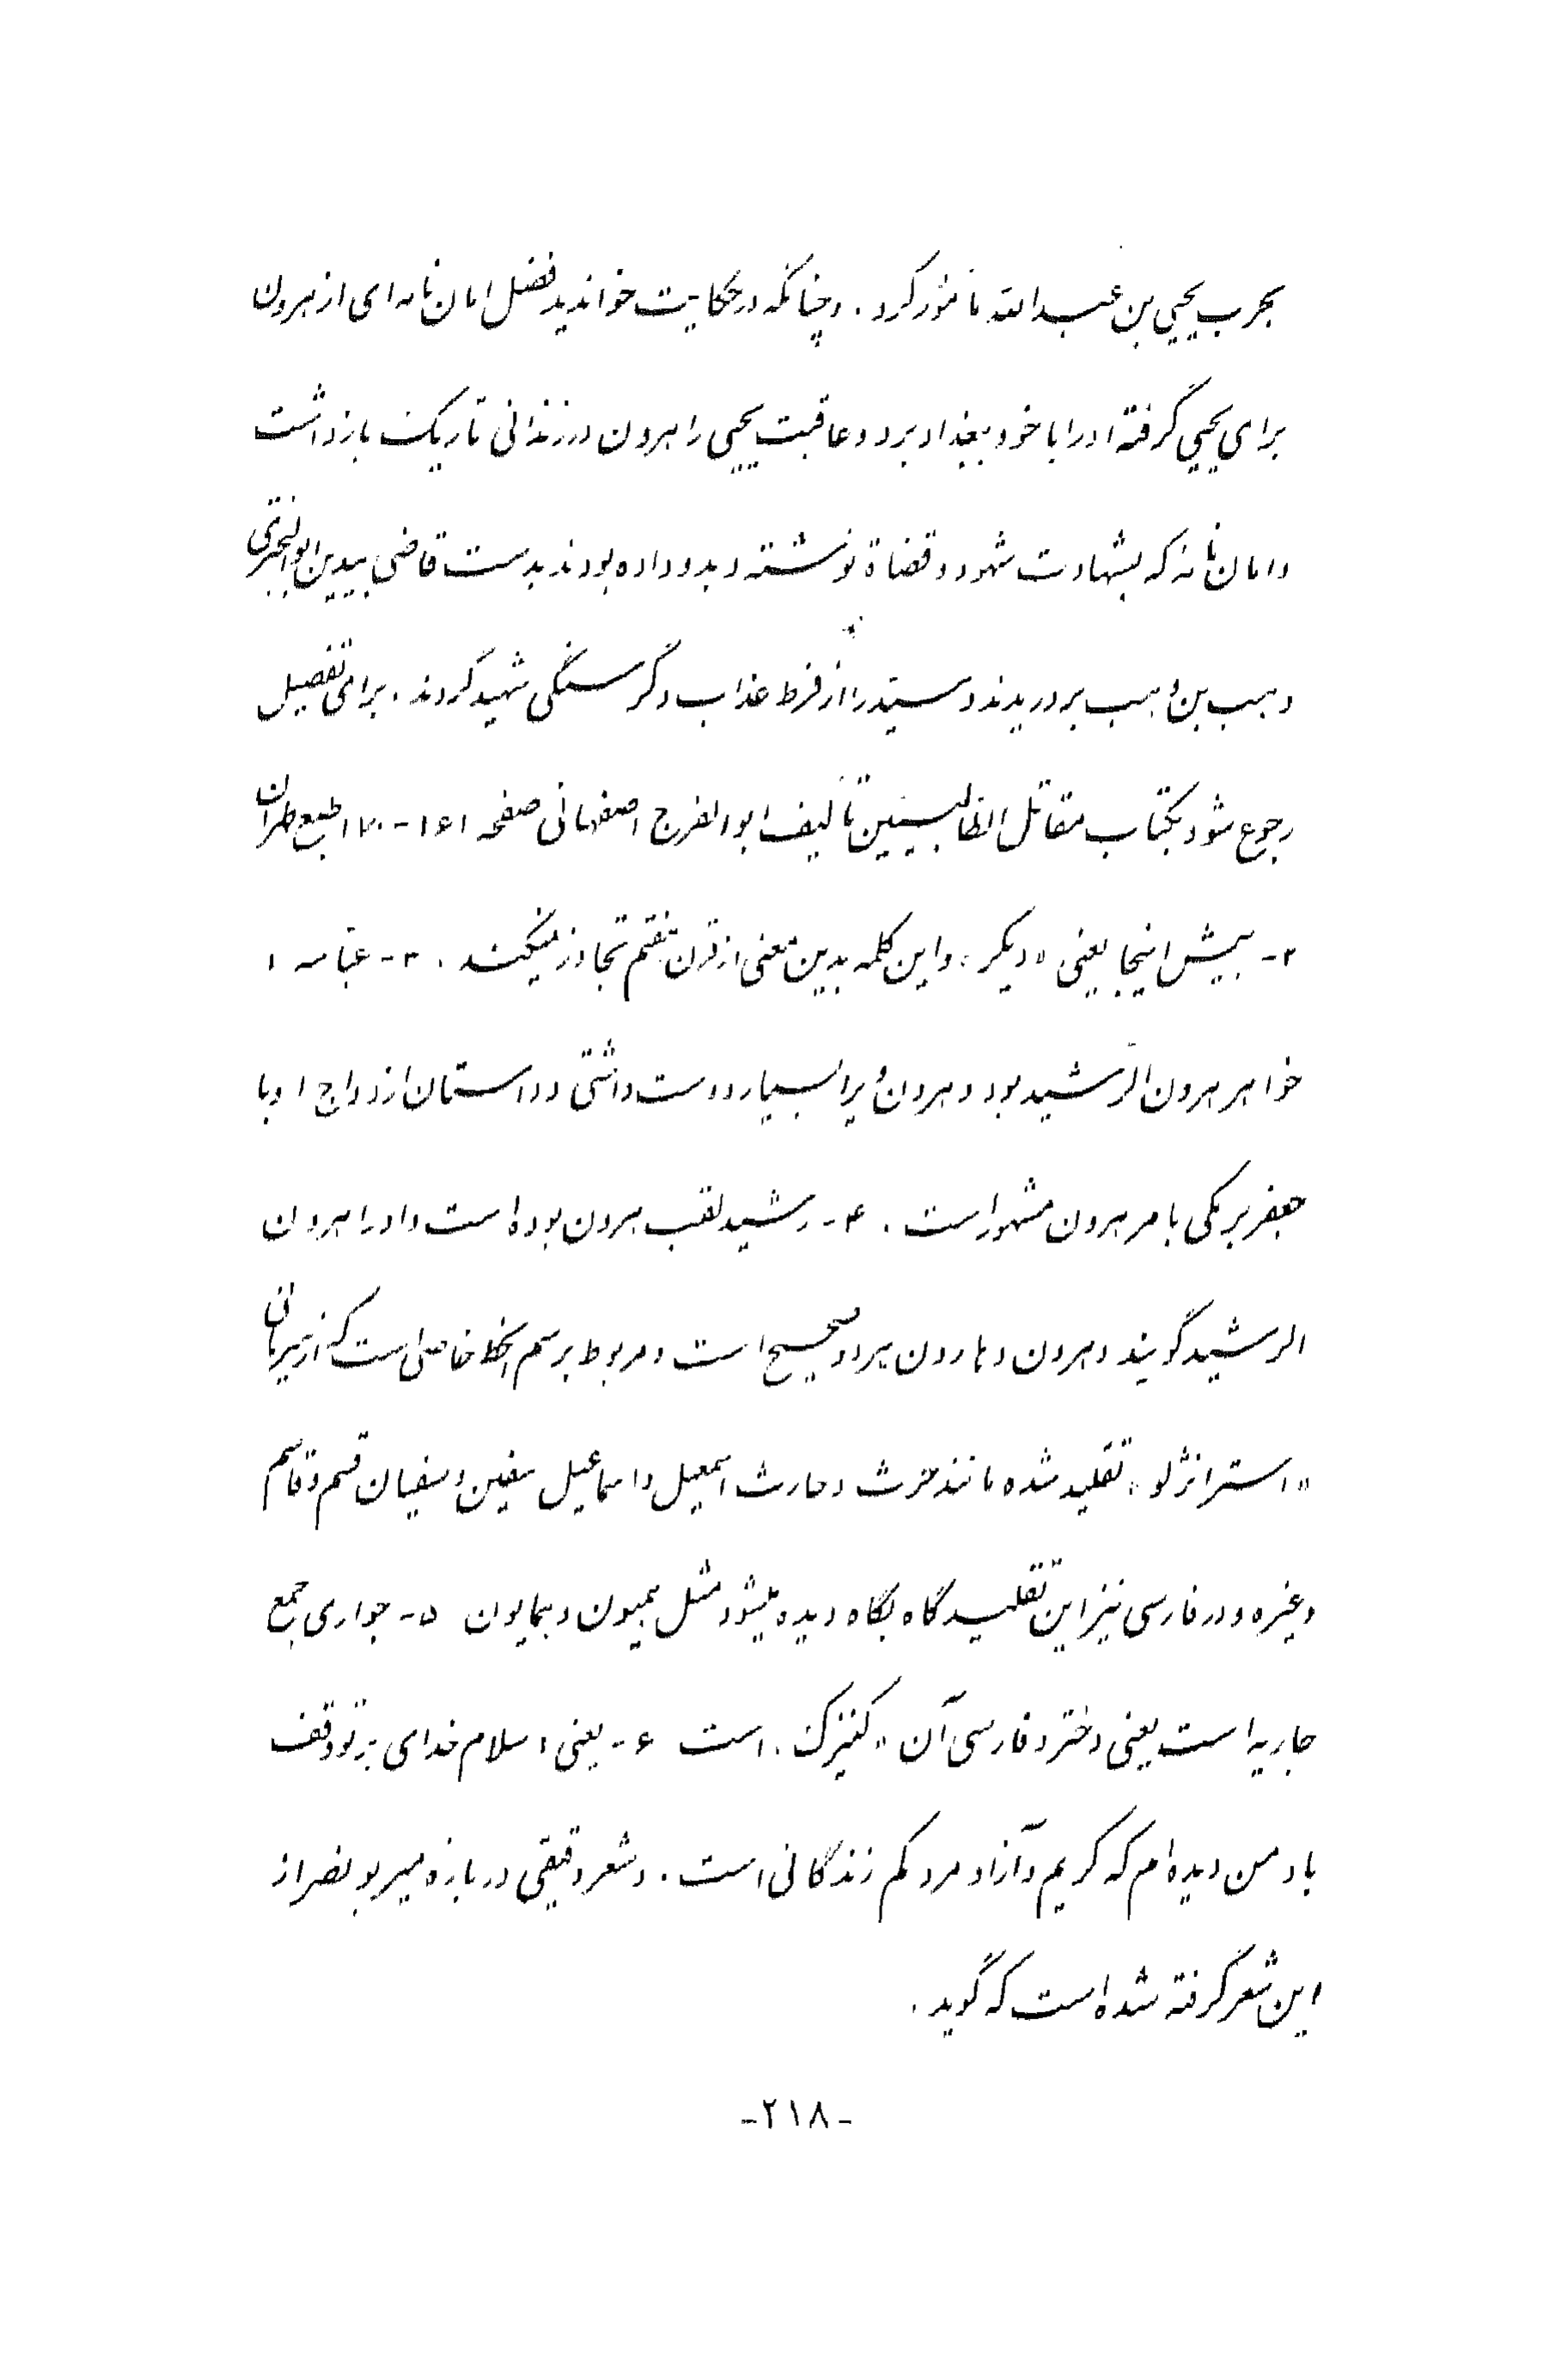 بحرب یحیی بن عبدالله مأمور کرد. و چنانکه در حکایت خواندید فضل امان نامه‌ای از هرون
برای یحیی گرفته او را با خود ببغداد برد و عاقبت یحیی را هرون در زندانی تاریک بازداشت
و امان نامه که بشهادت شهود و قضاة نوشته و بدو داده بودند بدست قاضی بیدین ابوالبختری
وهب بن وهب بردریدند و سید را از فرط عذاب و گرسنگی شهید کردند. برای تفصیل
رجوع شود بکتاب مقاتل الطالبیین تألیف ابوالفرج اصفهانی صفحه ۱۶۱-۱۷۰ طبع طهران
۲- بیش اینجا یعنی «دیگر» و این کلمه بدین معنی از قرن هفتم تجاوز نمیکند. ۳- عباسه
خواهر هرون الرشید بود و هرون ویرا بسیار دوست داشتی و داستان ازدواج او با
جعفر برمکی بامر هرون مشهور است. ۴- رشید لقب هرون بوده است و او را هرون
الرشید گویند و هرون و هارون هردو صحیح است و مربوط برسم الخط خاصی است که از سریانی
«استرانژلو» تقلید شده مانند حرث و حارث اسمعیل و اسماعیل سفین و سفیان قسم و قاسم
و غیره و در فارسی نیز این تقلید گاه بگاه دیده میشود مثل همیون و همایون ۵- جواری جمع
جاریه است یعنی دختر و فارسی آن «کنیزک» است ۶- یعنی: سلام خدای بر تو وقف
باد من دیده‌ام که کریم و آزاد مرد کم زندگانی است. و شعر دقیقی درباره میر بونصر از
این شعر گرفته شده است که گوید.
-۲۱۸-